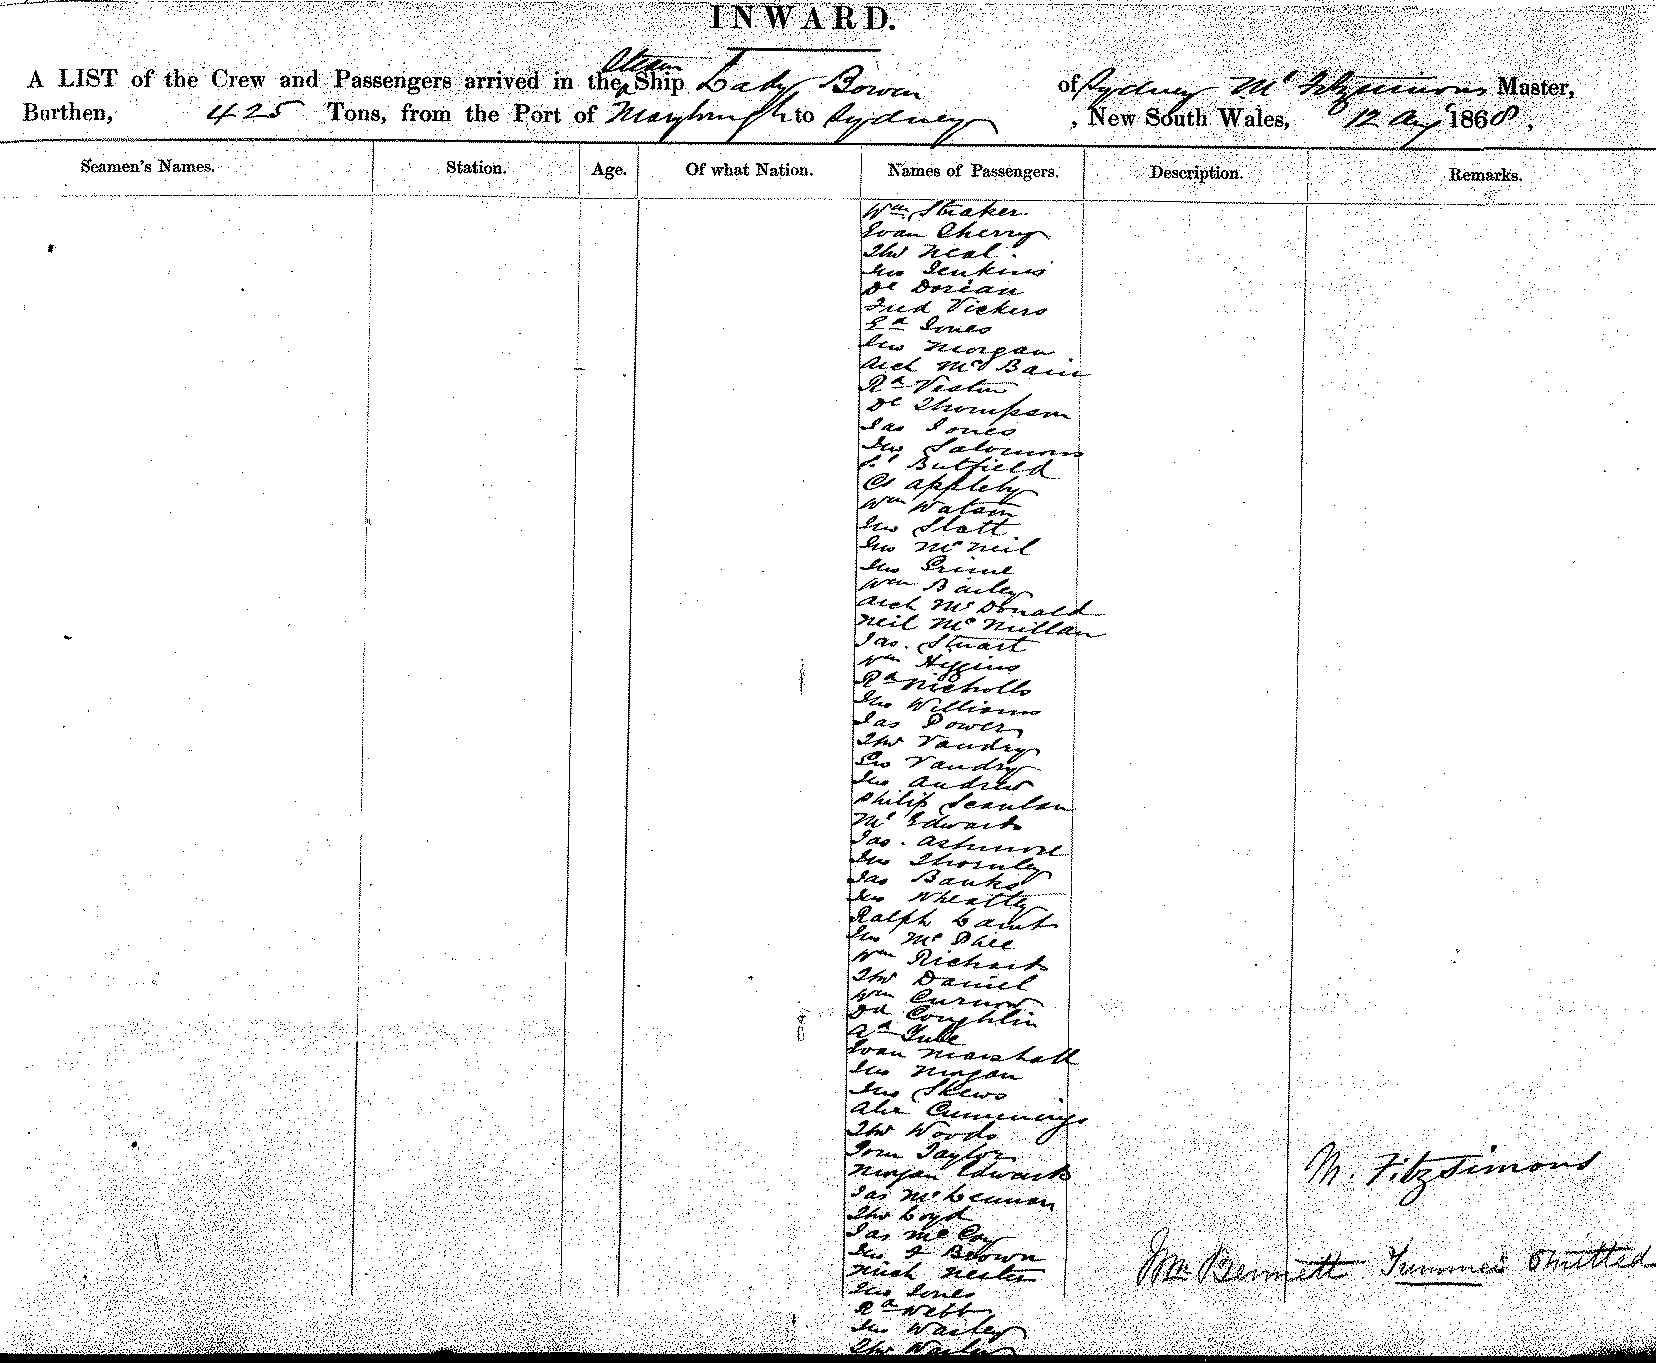 INWARD.
A LIST of the Crew and Passengers arrived in the Steam Ship Lady Bowen of Sydney Mr Fitzsimons Master,
Burthen, 425 Tons, from the Port of Maryborough to Sydney , New South Wales, 12 Aug 1868,
Seamen's Names. Station. Age. Of what Nation. Names of Passengers. Description. Remarks.
Wm Straker
Evan Cherry
Thos Neal
Jno Jenkins
Dl Dorian
Fred Vickers
Ed Jones
Jno Morgan
Arch McBain
Rd
Dl Thompson
Jas Jones
Jno Salomons
Butfield
Cs Appleby
Wm Watson
Jno Slatt
Jno McNeil
Jno
Wm Bailey
Arch McDonald
Neil McMillan
Jas. Stuart
Wm Higgins
Rd Nicholls
Jno Williams
Jas Power
Thos Vandry
Geo Vandry
Jno Andrew
Philip Scanlan
Mr Edwards
Jas. Ashmore
Jno Thornley
Jas Banks
Jno Wheatley
Ralph
Jno McPhee
Wm Richards
Thos Daniel
Wm Curnow
Dd Coughlin
Evan Marshall
Jno Morgan
Jno Skews
Alex Cummings
Thos Woods
Tom Taylor
Morgan Edwards
Jas McLennan
Thos Loyd
Jas McCoy
Jno Brown
Mich
Jno Jones
Rd Webb
Jno
Thos
M. Fitzsimons
Wm Bennett Omitted